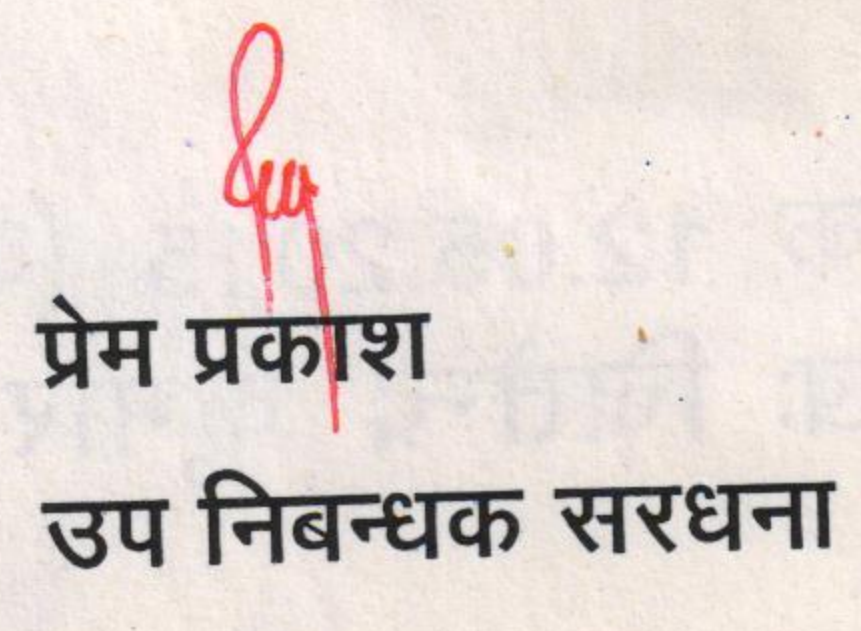 प्रेम प्रकाश
उप निबन्धक सरधना